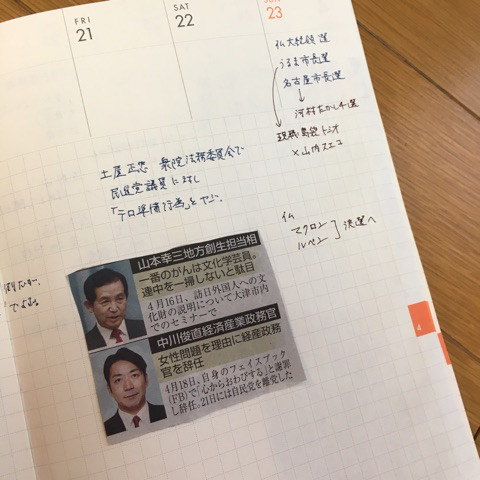 FRI
21
SAT
22
SUN
23
仏大統領選
うるま市長選
名古屋市長選
河村たかし4選
現職 島袋トシオ
×山内スエコ
土屋正忠 衆院法務委員会で
民進党議員に対し
「テロ準備行為」とヤジ。
仏
マクロン
ルペン
決選へ
山本幸三地方創生担当相
一番のがんは文化学芸員。
連中を一掃しないと駄目
4月16日、訪日外国人への文
化財の説明について大津市内
でのセミナーで
中川俊直経済産業政務官
女性問題を理由に経産政務
官を辞任
4月18日、自身のフェイスブック
(FB)で「心からおわびする」と謝罪
し辞任。21日には自民党を離党した
4